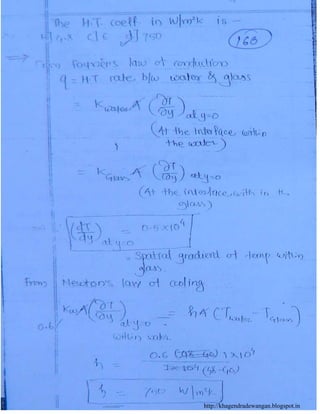 The H.T. coeff. in W/m²k is -
4.8 c] 6 d] 750
168
⇒ From Fourier's law of conduction
q = H.T. rate b/w water & glass
= Kwater A (∂T/∂y) at y=0
(At the Interface within
the water)
= KGlass A (∂T/∂y) at y=0
(At the interface, with in the
glass)
(dT/dy) at y=0 = 0.5×10⁴
= Spatial gradient of temp within
glass.
From Newton's law of cooling
Kw A (∂T/∂y) at y=0 = hA (Twater - TGlass)
0.6
within water
h = 0.6 1×10⁴
(48-40)
h = 750 W/m²k.
http://khagendradewangan.blogspot.in